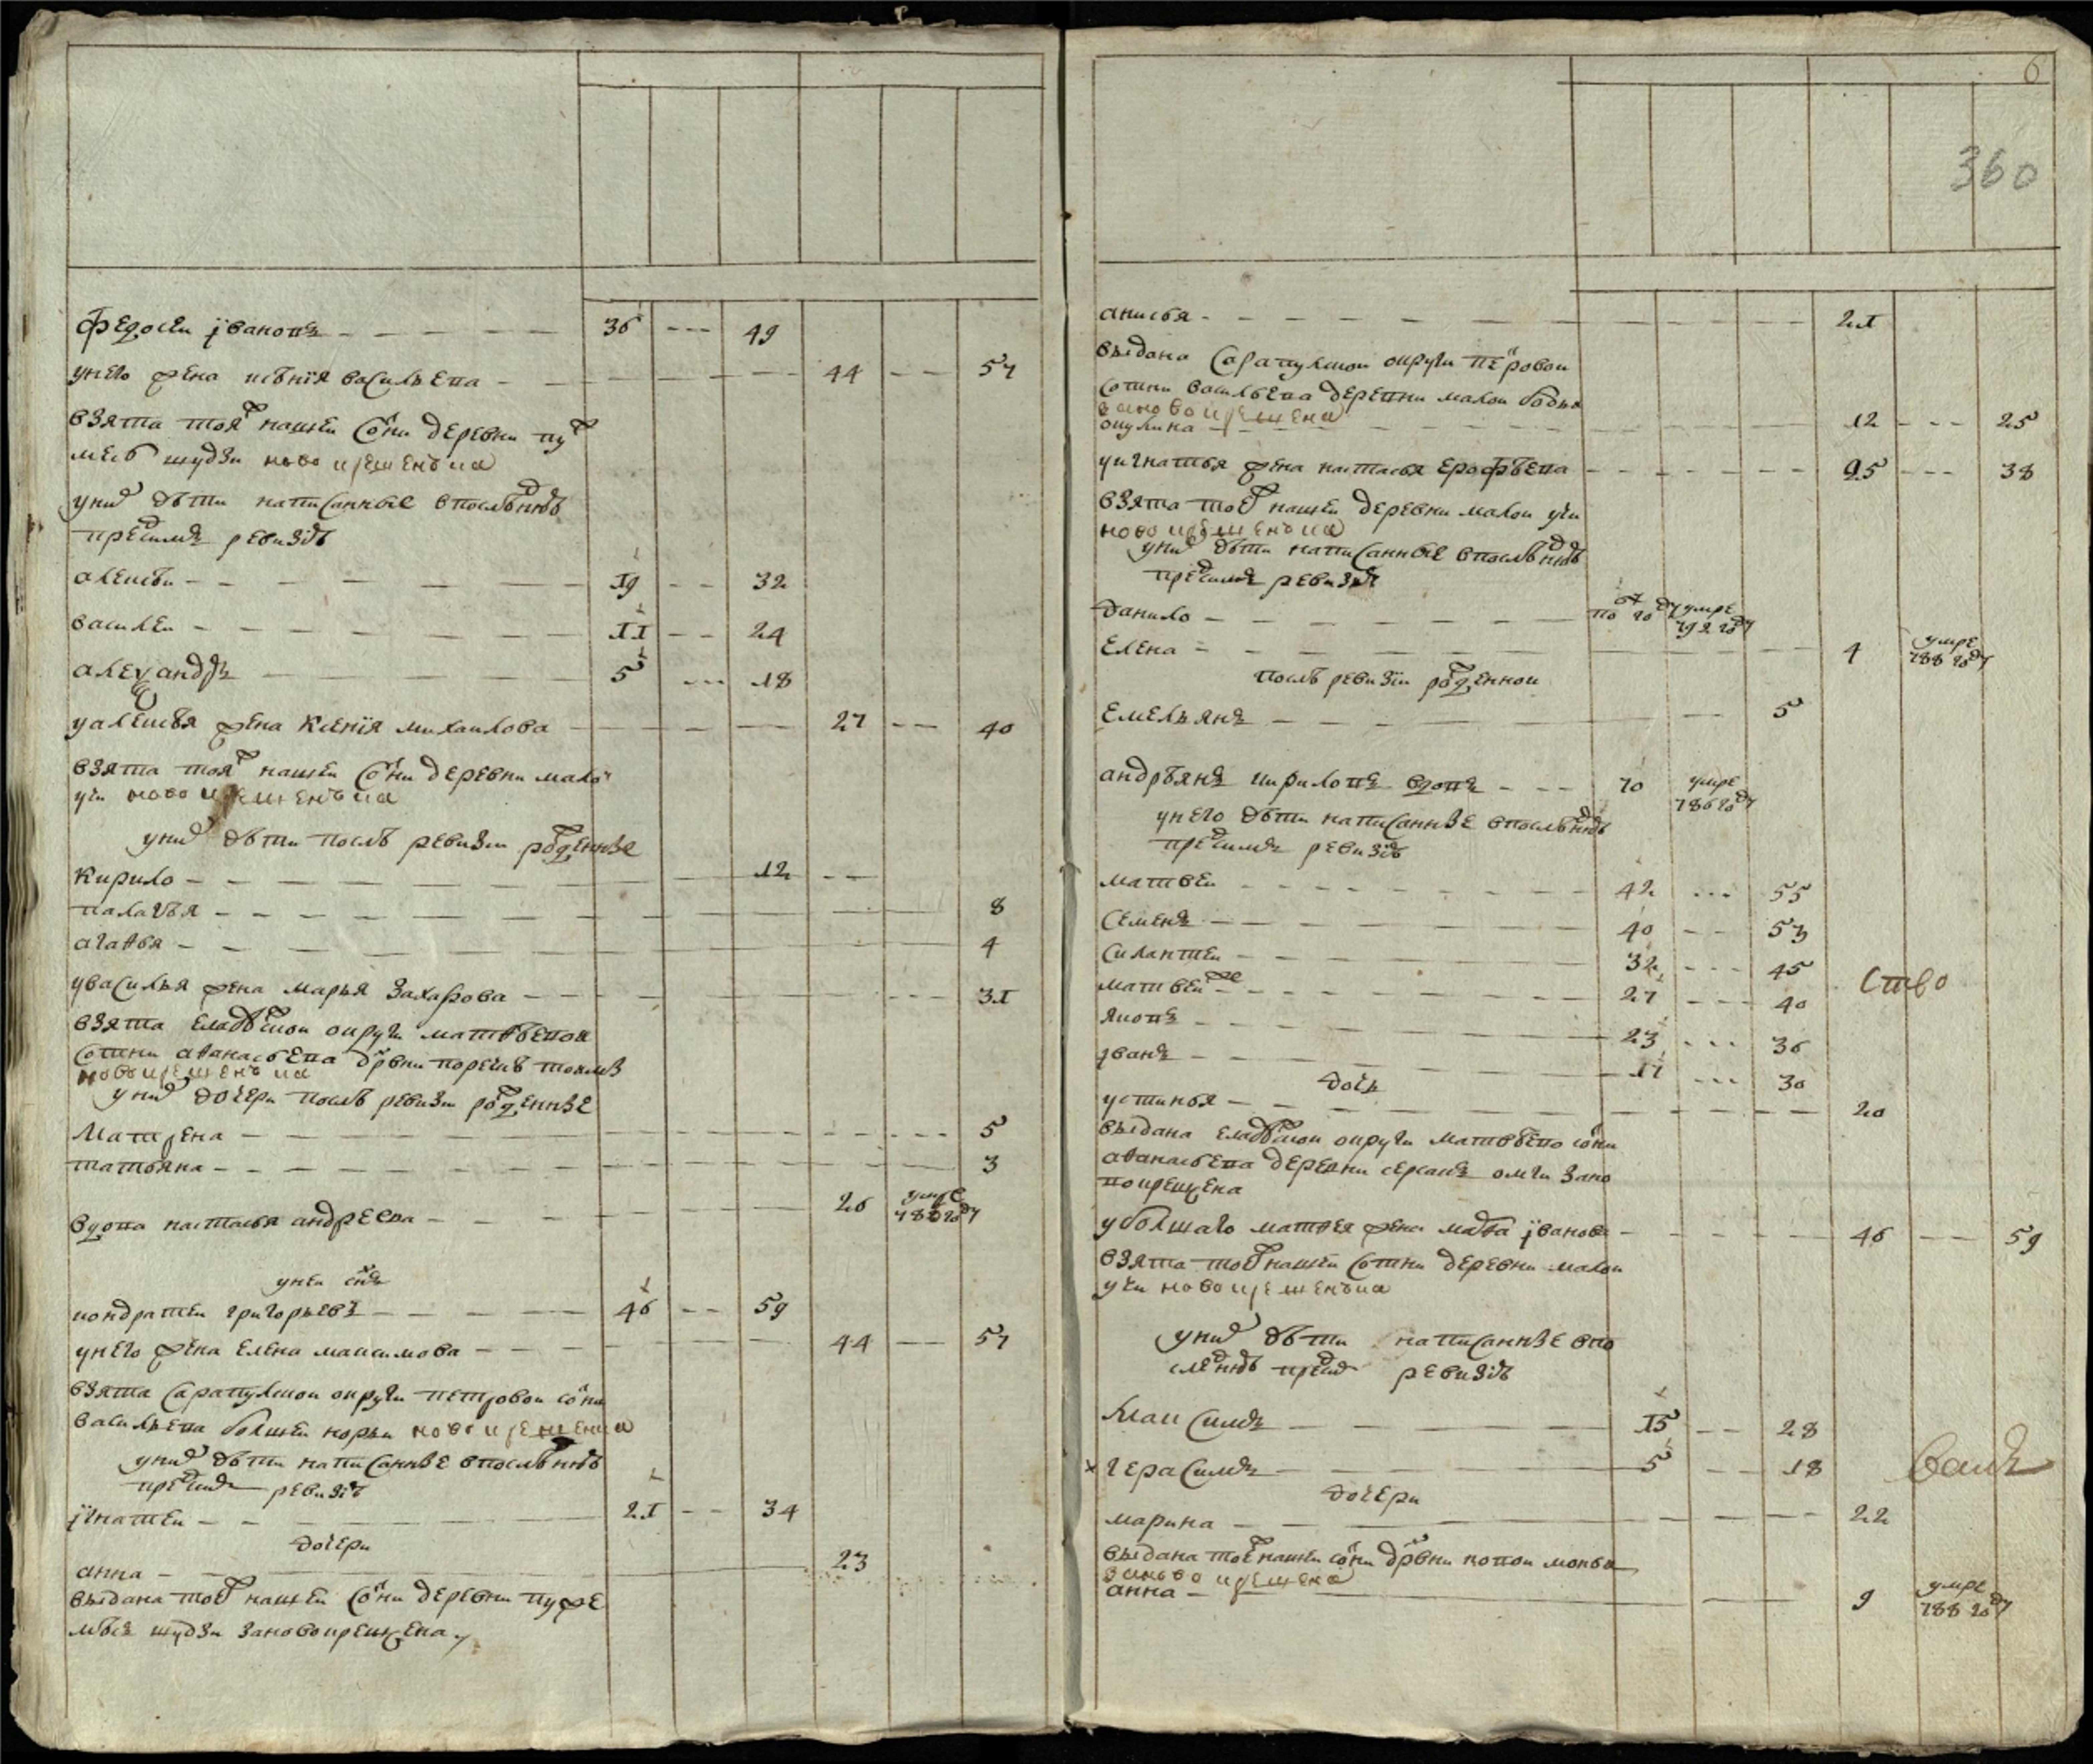 Федосей Ивановъ 36 --- 49
у него жена Ксѣнія Васильева 44 -- 57
взята тояж нашей сотни деревни Пуж
месь Шудзи новокрещенъка
у них дѣти написанные в последнюю
пред сим ревизiю
Алексѣй 19 -- 32
Василей 11 -- 24
Алеѯандръ 5 --- 18
у Алексѣя жена Ксенїя Михаилова 27 -- 40
взята тояж нашей сотни деревни Малой
Учи новокрещенъка
у них дѣти послѣ ревизии рожденные
Кирило 12 --
Палагѣя 8
Агаѳья 4
у Василья жена Марья Захарова --- 31
взята Елабужской округи Матвѣевой
сотни Аѳанасьева дрвни
новокрещенъка
у них дочери послѣ ревизии рожденные
Матрена 5
Татьяна 3
вдова Настасья Андреева 26 умре 786 году
у ней сынъ
Кондратей Григорьевъ 46 -- 59
у него жена Елена Максимова 44 -- 57
взята Сарапулской округи Петровой сотни
Васильева Болшей Норьи новокрещенка
у них дѣти написанные в последнюю
пред сим ревизiю
Їгнатей 21 -- 34
дочери
Анна 23
выдана тоеж нашей сотни деревни Пужe
мѣсь Шудзи за новокрещена
6
360
Анисья 21
выдана Сарапулской округи Петровой
сотни Васильева деревни Малой Бодьи
за новокрещена
Окулина 12 --- 25
у Игнатья жена Настасья Ерофѣева 25 --- 38
взята тоеж нашей деревни Малой Учи
новокрещенъка
у них дѣти написанные в последнюю
пред сим ревизiю
Данило по году умре 792 году
Елена 4 умре 788 году
послѣ ревизiи рожденной
Емельянъ 5
Андрѣянъ Кириловъ вдовъ --- 70 умре 786 году
у него дѣти написанные в последнюю
пред сим ревизiю
Матвей 42 --- 55
Семенъ 40 -- 53
Силантей 32 --- 45
Матвей же 27 --- 40
ство
Яковъ 23 --- 36
Їванъ 17 --- 30
дочь
Устинья 20
выдана Елабужской округи Матвѣево сотни
Аѳанасьева деревни за но
вокрещена
у болшаго Матвея жена Марѳа Їванова 46 -- 59
взята тоеж нашей сотни деревни Малой
Учи новокрещенъка
у них дѣти написанные в по
следнюю пред сим ревизiю
Максимъ 15 -- 28
× Герасимъ 5 -- 18
дочери
Марина 22
выдана тоеж нашей сотни дрвни Новой Моньи
за новокрещена
Анна 9 умре 788 году